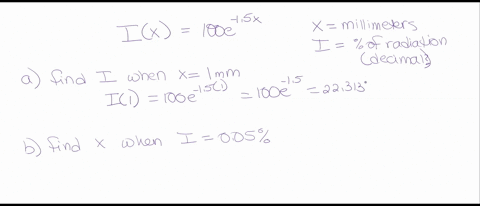 I(x) = 100e^-1.5x
x = millimeters
I = % of radiation
(decimal)
a) find I when x = 1mm
I(1) = 100e^-1.5(1) = 100e^-1.5 = 22.313
b) find x when I = 0.05%